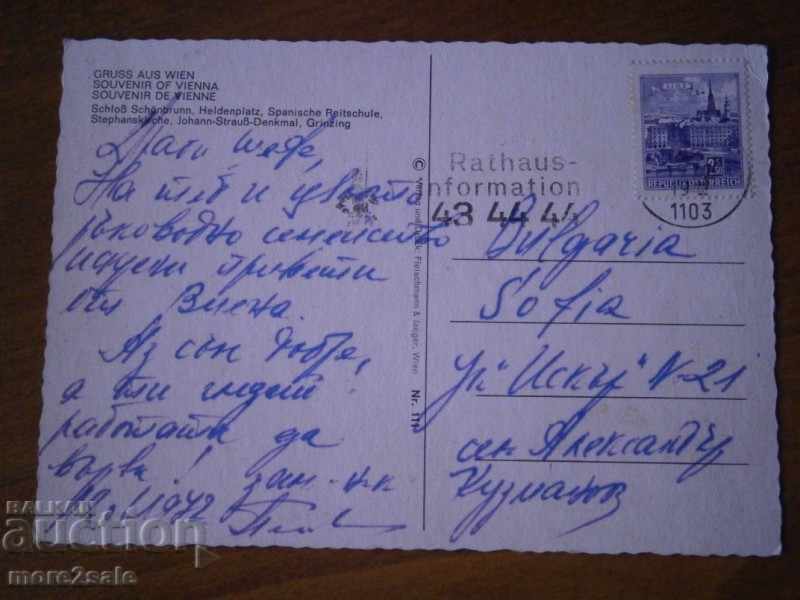 GRUSS AUS WIEN
SOUVENIR OF VIENNA
SOUVENIR DE VIENNE
Schloß Schönbrunn, Heldenplatz, Spanische Reitschule,
Stephanskirche, Johann-Strauß-Denkmal, Grinzing
Драги шефе,
На теб и цялото
ръководно семейство
поздрави
от Виена.
Аз съм добре,
а ти гледай
работата да
върви! зам.
1972
© Fleischmann & Jaeger, Wien Nr. 111
Rathaus-
nformation
43 44 44
1103
REPUBLIK ÖSTERREICH
Bulgaria
Sofia
ул. "Искър" N-21
Александър
Кузманов
БАЛКАН
auction
more2sale